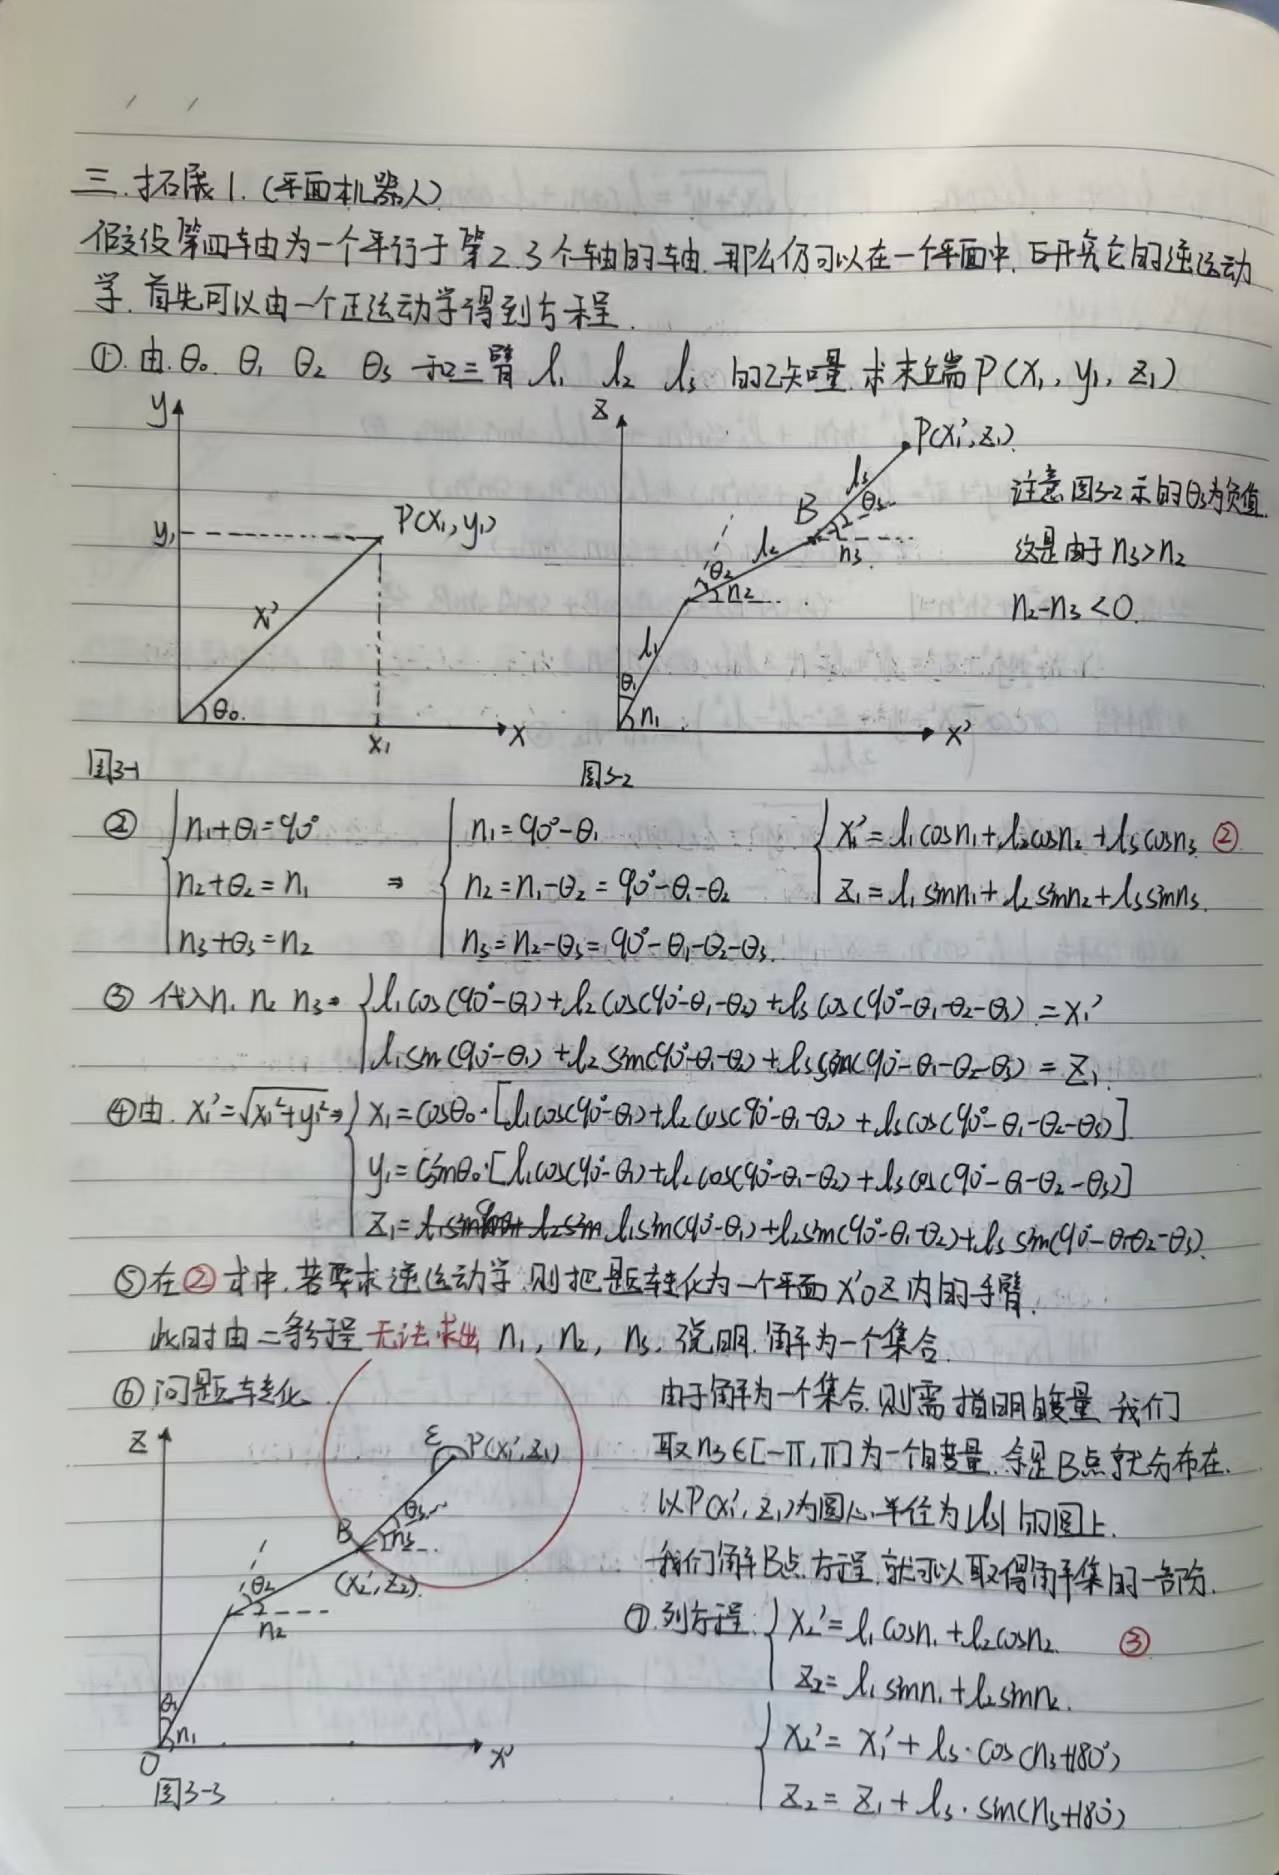 三.拓展1.(平面机器人)
假设第四轴为一个平行于第2.3个轴的轴.那么仍可以在一个平面中,研究它的逆运动
学.首先可以由一个正运动学得到方程.
①.由.θ₀ θ₁ θ₂ θ₃ 和三臂 l₁ l₂ l₃ 的矢量.求末端P(x₁,y₁,z₁)
y
y₁
P(x₁,y₁)
x'
θ₀.
x₁
x
图3-1
z
P(x₁',z₁)
l₃
θ₃
B
n₃
l₂
θ₂
n₂
l₁
θ₁
n₁
x'
图3-2
注意图3-2示的θ₃为负值.
这是由于n₃>n₂
n₂-n₃<0.
② { n₁+θ₁=90° ⇒ { n₁=90°-θ₁ { x₁'=l₁cosn₁+l₂cosn₂+l₃cosn₃ ②
n₂+θ₂=n₁ n₂=n₁-θ₂=90°-θ₁-θ₂ z₁=l₁sinn₁+l₂sinn₂+l₃sinn₃.
n₃+θ₃=n₂ n₃=n₂-θ₃=90°-θ₁-θ₂-θ₃.
③ 代入n₁ n₂ n₃⇒ { l₁cos(90°-θ₁)+l₂cos(90°-θ₁-θ₂)+l₃cos(90°-θ₁-θ₂-θ₃)=x₁'
l₁sin(90°-θ₁)+l₂sin(90°-θ₁-θ₂)+l₃sin(90°-θ₁-θ₂-θ₃)=z₁.
④由.x₁'=√x₁²+y₁²⇒ { x₁=cosθ₀·[l₁cos(90°-θ₁)+l₂cos(90°-θ₁-θ₂)+l₃cos(90°-θ₁-θ₂-θ₃)]
y₁=sinθ₀·[l₁cos(90°-θ₁)+l₂cos(90°-θ₁-θ₂)+l₃cos(90°-θ₁-θ₂-θ₃)]
z₁=l₁sin(90°-θ₁)+l₂sin(90°-θ₁-θ₂)+l₃sin(90°-θ₁-θ₂-θ₃).
⑤在②式中.若要求逆运动学.则把题转化为一个平面x'oz内的手臂.
此时由二条方程无法求出 n₁,n₂,n₃.说明.解为一个集合.
⑥问题转化.
z
ε
P(x₁',z₁)
θ₃
B
n₃
(x₂',z₂)
θ₂
n₂
θ₁
n₁
O
x'
图3-3
由于解为一个集合.则需指明自变量.我们
取n₃∈[-π,π]为一个自变量.于是B点就分布在.
以P(x₁',z₁)为圆心.半径为|l₃|的圆上.
我们解B点方程.就可以取得解集的一部分.
⑦.列方程.{ x₂'=l₁cosn₁+l₂cosn₂. ③
z₂=l₁sinn₁+l₂sinn₂.
{ x₂'=x₁'+l₃·cos(n₃+180°)
z₂=z₁+l₃·sin(n₃+180°)